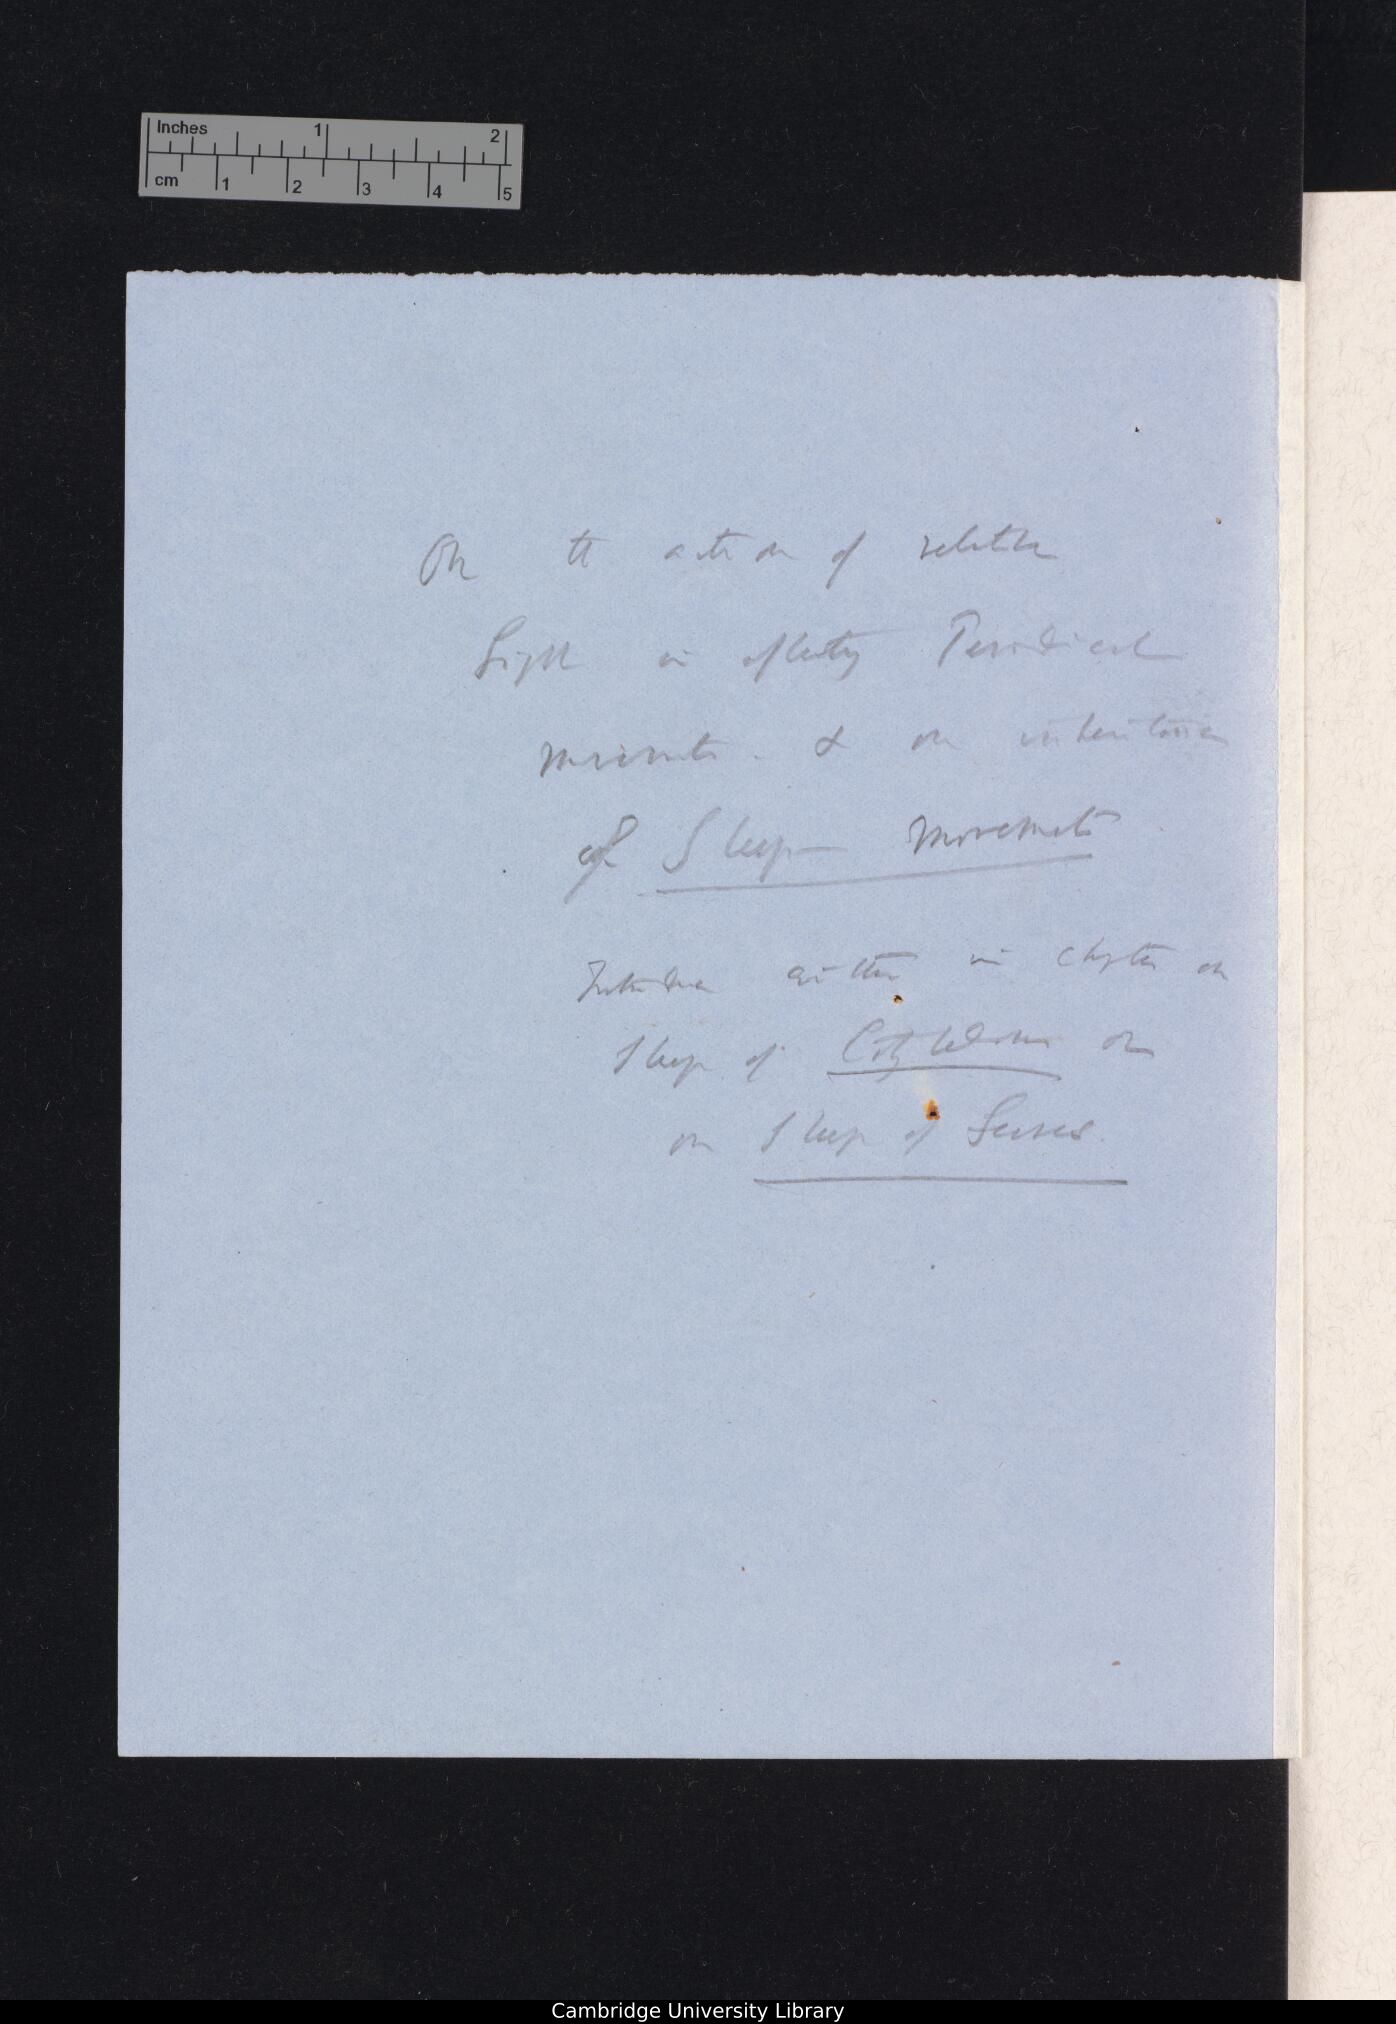 Inches 1 2
cm 1 2 3 4 5
On the action of relative
Light in affecting Periodical
movements. & on inheritance
of Sleep movements
Introduce either in chapter on
Sleep of Cotyledons or
on Sleep of Leaves.
Cambridge University Library